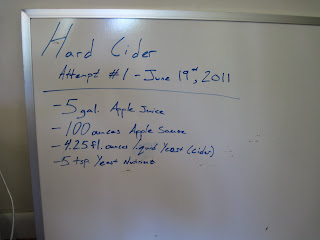 Hard Cider
Attempt #1 - June 19th, 2011
-5 gal. Apple Juice
-100 ounces Apple Sauce
-4.25 fl. ounces liquid Yeast (cider)
-5 tsp. Yeast Nutrient